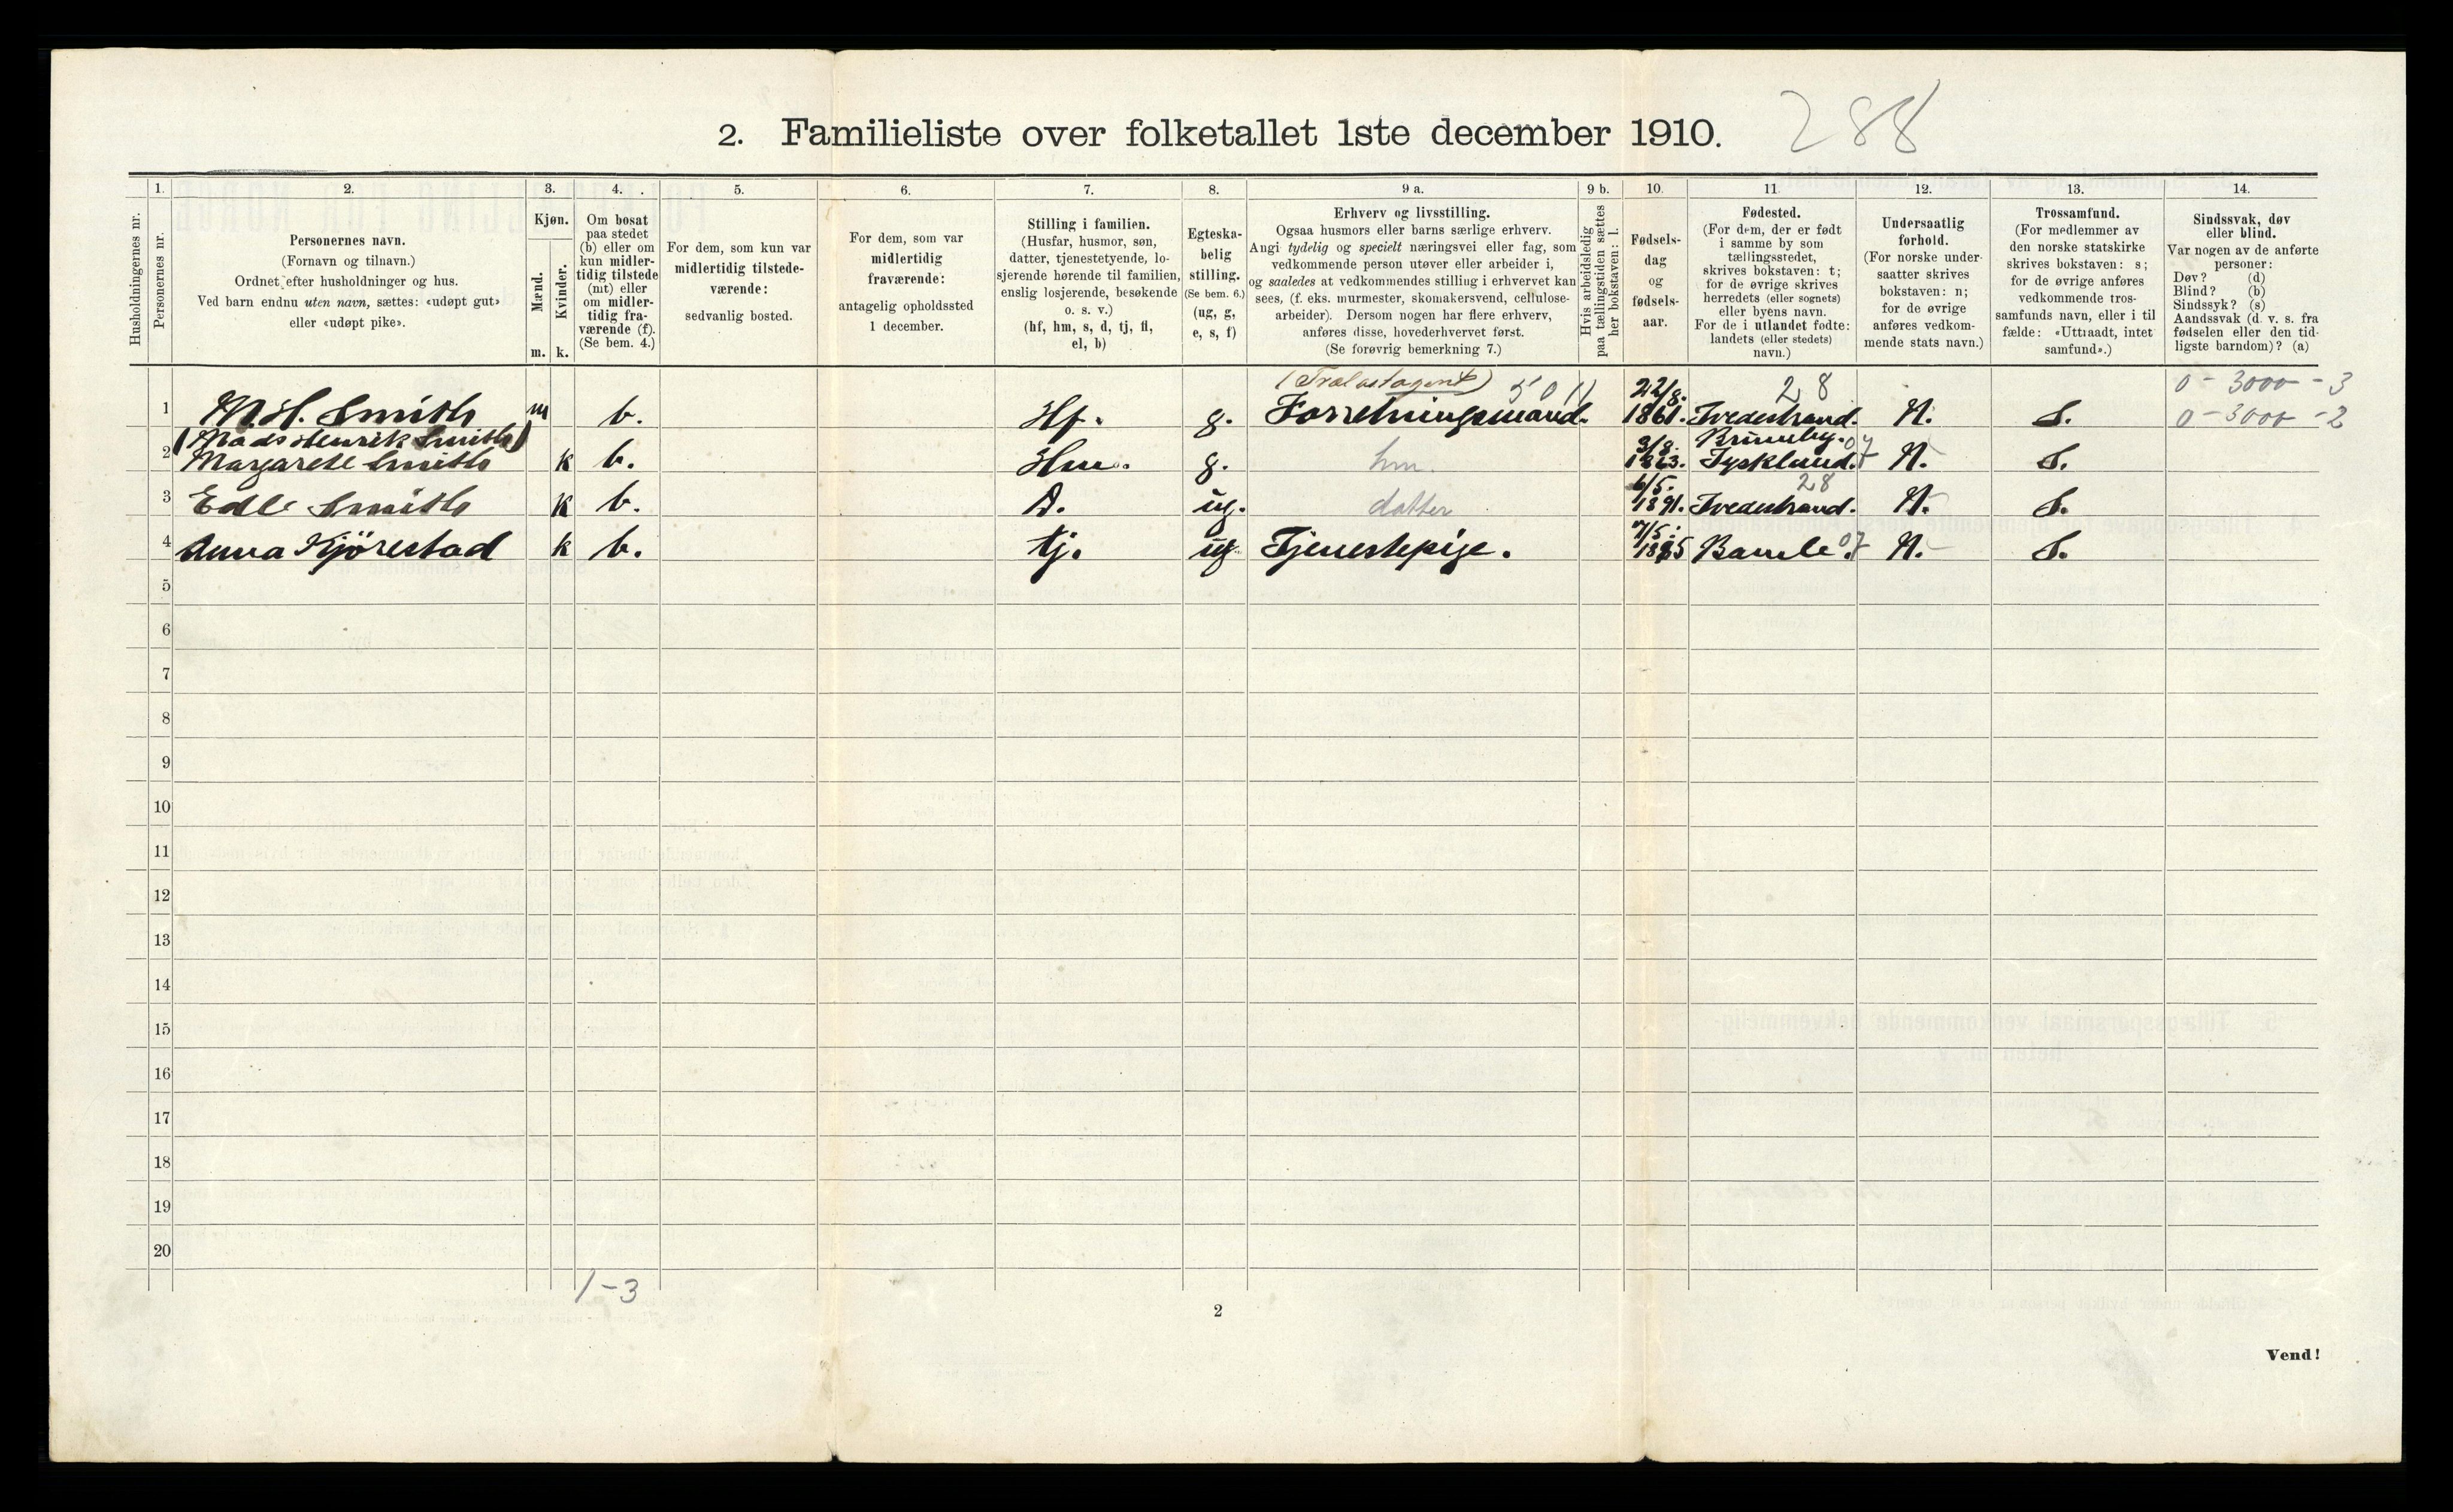 2. Familieliste over folketallet 1ste december 1910. 288
1. 2. 3. 4. 5. 6. 7. 8. 9 a. 9 b. 10. 11. 12. 13. 14.
Husholdningernes nr.
Personernes nr.
Personernes navn.
(Fornavn og tilnavn.)
Ordnet efter husholdninger og hus.
Ved barn endnu uten navn, sættes: «udøpt gut»
eller «udøpt pike».
Kjøn.
Mænd.
m.
Kvinder.
k.
Om bosat
paa stedet
(b) eller om
kun midler-
tidig tilstede
(mt) eller
om midler-
tidig fra-
værende (f).
(Se bem. 4.)
For dem, som kun var
midlertidig tilstede-
værende:
sedvanlig bosted.
For dem, som var
midlertidig
fraværende:
antagelig opholdssted
1 december.
Stilling i familien.
(Husfar, husmor, søn,
datter, tjenestetyende, lo-
sjerende hørende til familien,
enslig losjerende, besøkende
o. s. v.)
(hf, hm, s, d, tj, fl,
el, b)
Egteska-
belig
stilling.
(Se bem. 6.)
(ug, g,
e, s, f)
Erhverv og livsstilling.
Ogsaa husmors eller barns særlige erhverv.
Angi tydelig og specielt næringsvei eller fag, som
vedkommende person utøver eller arbeider i,
og saaledes at vedkommendes stilling i erhvervet kan
sees, (f. eks. murmester, skomakersvend, cellulose-
arbeider). Dersom nogen har flere erhverv,
anføres disse, hovederhvervet først.
(Se forøvrig bemerkning 7.)
Hvis arbeidsledig
paa tællingstiden sættes
her bokstaven: l.
Fødsels-
dag
og
fødsels-
aar.
Fødested.
(For dem, der er født
i samme by som
tællingsstedet,
skrives bokstaven: t;
for de øvrige skrives
herredets (eller sognets)
eller byens navn.
For de i utlandet fødte:
landets (eller stedets)
navn.)
Undersaatlig
forhold.
(For norske under-
saatter skrives
bokstaven: n;
for de øvrige
anføres vedkom-
mende stats navn.)
Trossamfund.
(For medlemmer av
den norske statskirke
skrives bokstaven: s;
for de øvrige anføres
vedkommende tros-
samfunds navn, eller i til
fælde: «Uttraadt, intet
samfund».)
Sindssvak, døv
eller blind.
Var nogen av de anførte
personer:
Døv? (d)
Blind? (b)
Sindssyk? (s)
Aandssvak (d. v. s. fra
fødselen eller den tid-
ligste barndom)? (a)
(Trælastagent) 5011 22/8. 28 0-3000-3
1 M.H. Smith m b. Hf. g. Forretningsmand. 1861. Tvedestrand. N. S. 0-3000-2
(Mads Henrik Smith) 3/8.
2 Margarete Smith k b. Hm. g. hm. 1863. Tyskland. N. S.
6/5. 28
3 Edle Smith k b. D. ug. datter 1891. Tvedestrand. N. S.
4 Anna Kjørestad k b. tj. ug. Tjenestepige. Bamle. 07 N. S.
5
6
7
8
9
10
11
12
13
14
15
16
17
18
19
20
1-3
2
Vend!